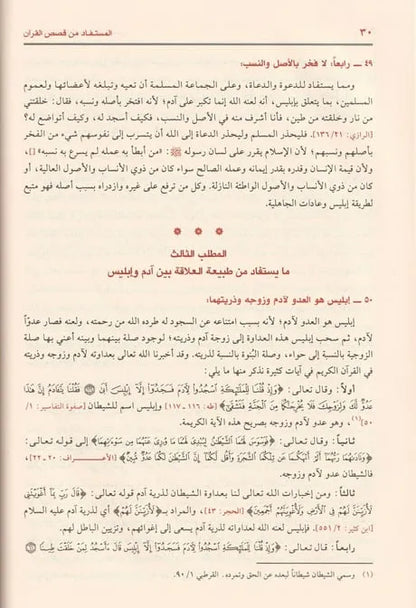 ٣٠ المستفاد من قصص القرآن
٤٩ ــ رابعاً: لا فخر بالأصل والنسب:
ومما يستفاد للدعوة والدعاة، وعلى الجماعة المسلمة أن تعيه وتبلغه لأعضائها ولعموم
المسلمين، بما يتعلق بإبليس، أنه لعنه الله إنما تكبر على آدم؛ لأنه افتخر بأصله ونسبه، فقال: خلقتني
من نار وخلقته من طين، فأنا أشرف منه في الأصل والنسب، فكيف أسجد له، وكيف أتواضع له؟
[الرازي: ١٣٦/٢١]. فليحذر المسلم وليحذر الدعاة إلى الله أن يتسرب إلى نفوسهم شيء من الفخر
بأصلهم ونسبهم؛ لأن الإسلام يقرر على لسان رسوله ﷺ: «من أبطأ به عمله لم يسرع به نسبه»[]،
ولأن قيمة الإنسان وقدره بقدر إيمانه وعمله الصالح سواء كان من ذوي الأنساب والأصول العالية، أو
كان من ذوي الأنساب والأصول الواطئة النازلة. وكل من ترفع على غيره وازدراه بسبب أصله فهو متبع
لطريقة إبليس وعادات الجاهلية.
* * *
المطلب الثالث
ما يستفاد من طبيعة العلاقة بين آدم وإبليس
٥٠ ــ إبليس هو العدو لآدم وزوجه وذريتهما:
إبليس هو العدو لآدم؛ لأنه بسبب امتناعه عن السجود له طرده الله من رحمته، ولعنه فصار عدواً
لآدم، ثم سحب إبليس هذه العداوة إلى زوجة آدم وذريته؛ لوجود صلة بينهما وبينه أعني بها صلة
الزوجية بالنسبة إلى حواء، وصلة البُنوة بالنسبة لذريته. وقد أخبرنا الله تعالى بعداوته لآدم وزوجه وذريته
في القرآن الكريم في آيات كثيرة نذكر منها ما يلي:
أولاً: وقال تعالى: ﴿وَإِذْ قُلْنَا لِلْمَلَٰٓئِكَةِ ٱسْجُدُوا۟ لِـَٔادَمَ فَسَجَدُوٓا۟ إِلَّآ إِبْلِيسَ أَبَىٰ ۝ فَقُلْنَا يَٰٓـَٔادَمُ إِنَّ هَٰذَا
عَدُوٌّ لَّكَ وَلِزَوْجِكَ فَلَا يُخْرِجَنَّكُمَا مِنَ ٱلْجَنَّةِ فَتَشْقَىٰٓ﴾ [طه: ١١٦ ــ ١١٧] وإبليس اسم للشيطان [صفوة التفاسير: ١/
٥٠](١)، وهو عدو لآدم وزوجه بصريح هذه الآية الكريمة.
ثانياً: وقال تعالى: ﴿فَوَسْوَسَ لَهُمَا ٱلشَّيْطَٰنُ لِيُبْدِىَ لَهُمَا مَا وُۥرِىَ عَنْهُمَا مِن سَوْءَٰتِهِمَا﴾ إلى قوله تعالى:
﴿وَنَادَىٰهُمَا رَبُّهُمَآ أَلَمْ أَنْهَكُمَا عَن تِلْكُمَا ٱلشَّجَرَةِ وَأَقُل لَّكُمَآ إِنَّ ٱلشَّيْطَٰنَ لَكُمَا عَدُوٌّ مُّبِينٌ﴾ [الأعـــراف: ٢٠ ــ ٢٢]،
فالشيطان عدو لآدم وزوجه.
ثالثاً: ومن إخبارات الله تعالى لنا بعداوة الشيطان لذرية آدم قوله تعالى: ﴿قَالَ رَبِّ بِمَآ أَغْوَيْتَنِى
لَأُزَيِّنَنَّ لَهُمْ فِى ٱلْأَرْضِ وَلَأُغْوِيَنَّهُمْ أَجْمَعِينَ﴾ [الحجر: ٤٣]، والمراد بـ﴿لَأُزَيِّنَنَّ لَهُمْ﴾ أي لذرية آدم عليه السلام
[ابن كثير: ٥٥١/٢]، فإبليس لعنه الله لعداواته لذرية آدم يسعى إلى إغوائهم، وتزيين الباطل لهم.
رابعاً: قال تعالى: ﴿وَإِذْ قُلْنَا لِلْمَلَٰٓئِكَةِ ٱسْجُدُوا۟ لِـَٔادَمَ فَسَجَدُوٓا۟ إِلَّآ إِبْلِيسَ قَالَ ءَأَسْجُدُ لِمَنْ خَلَقْتَ طِينًا ۝
(١) وسمي الشيطان شيطاناً لبعده عن الحق وتمرده. القرطبي ٩٠/١.